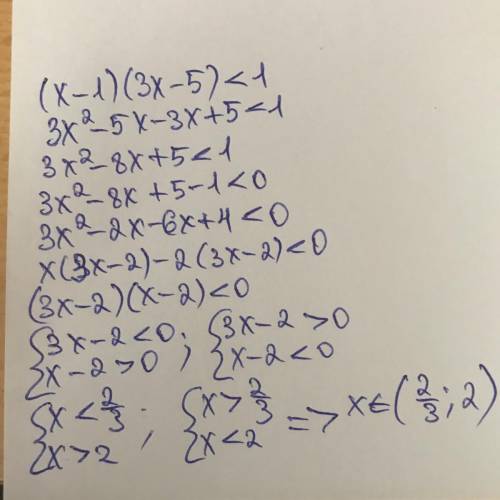 (x-1)(3x-5)<1
3x²-5x-3x+5<1
3x²-8x+5<1
3x²-8x+5-1<0
3x²-2x-6x+4<0
x(3x-2)-2(3x-2)<0
(3x-2)(x-2)<0
{3x-2<0 ; {3x-2>0
{x-2>0 {x-2<0
{x<2/3 ; {x>2/3 => x∈(2/3;2)
{x>2 {x<2